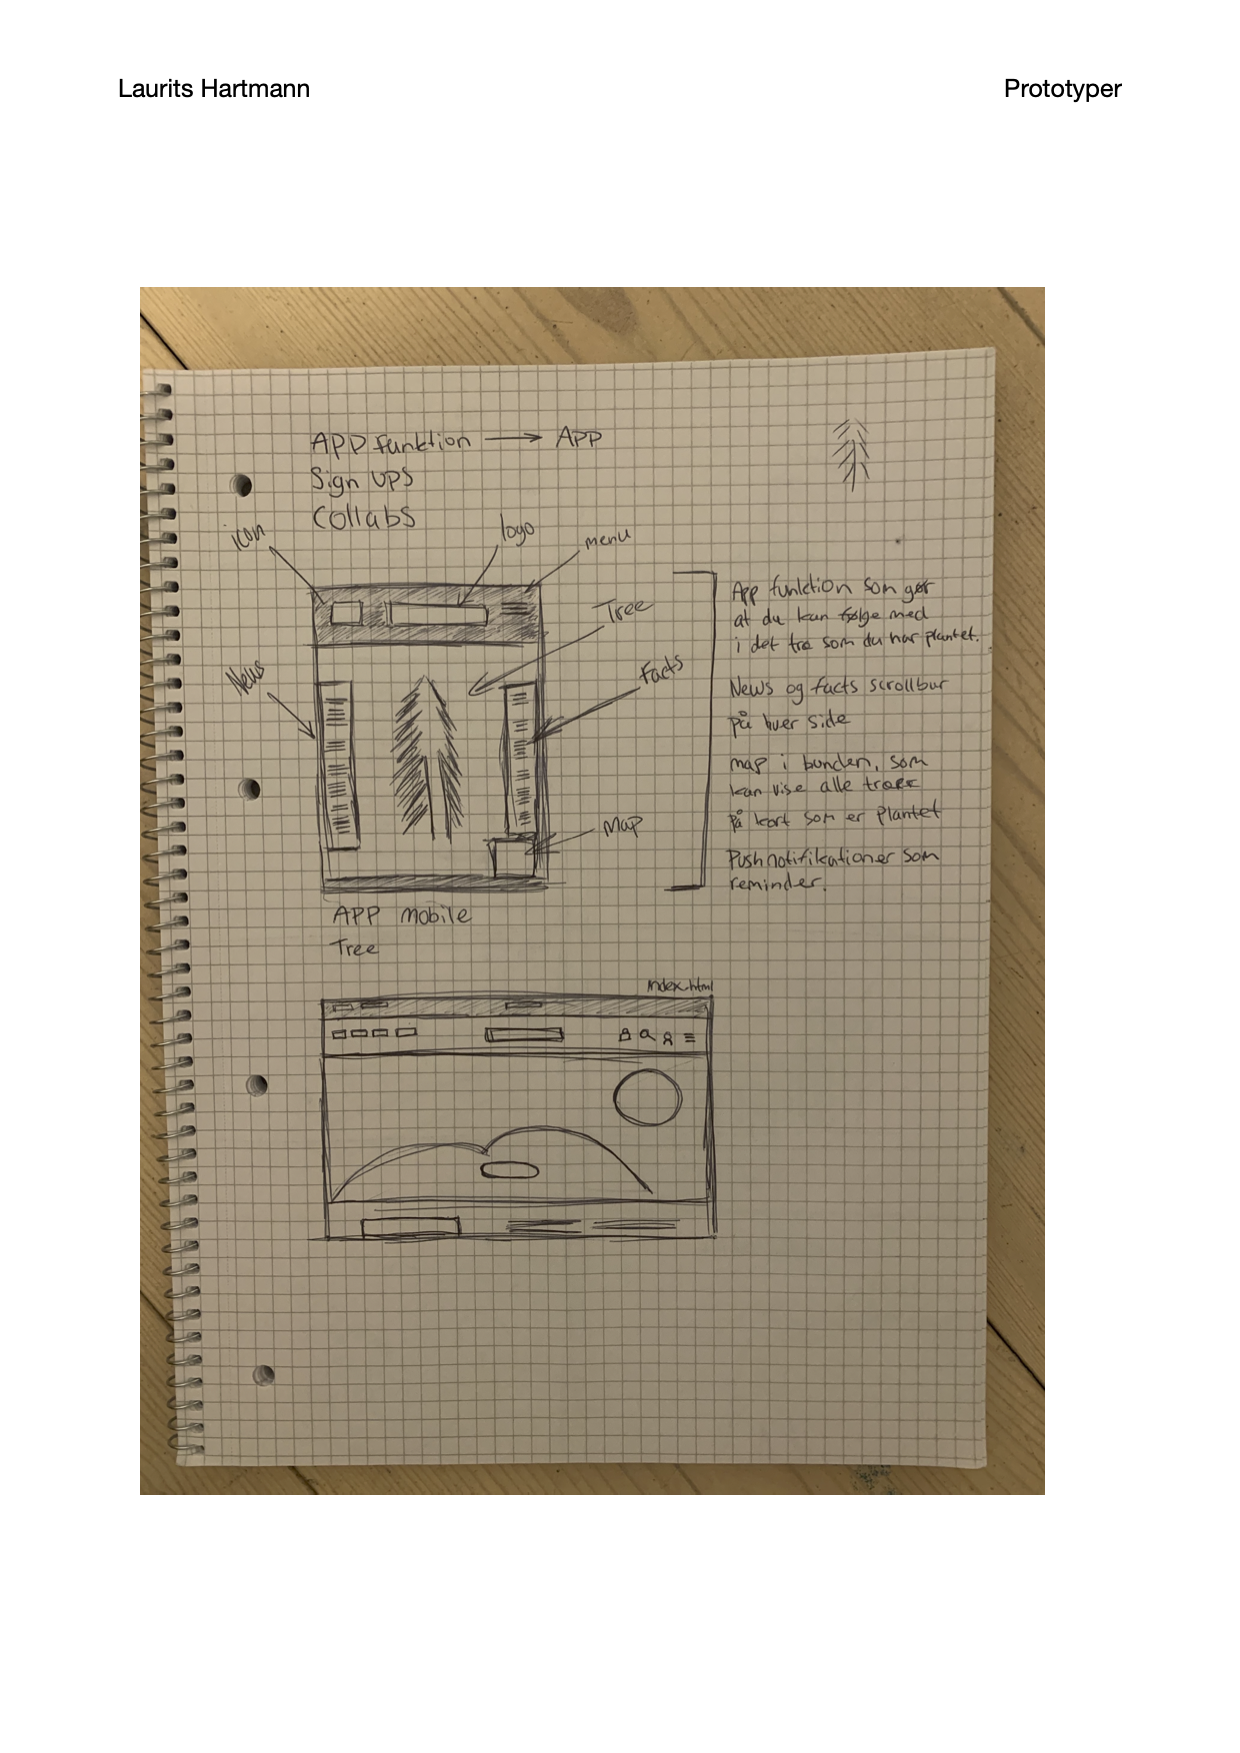 Laurits Hartmann
Prototyper
APP funktion → APP
Sign UPS
Collabs
icon
logo
menu
Tree
News
Facts
Map
App funktion som gør
at du kan følge med
i det træ som du har plantet.
News og facts scrollbar
på hver side
map i bunden, som
kan vise alle træer
på kort som er plantet
Pushnotifikationer som
reminder.
APP mobile
Tree
Index.html